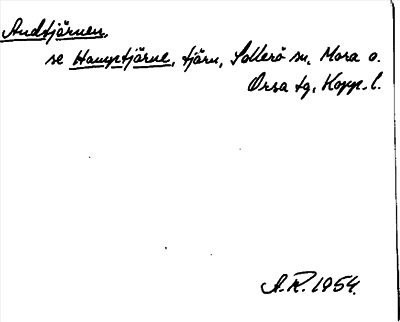 Andtjärnen,
se Hamptjärne, tjärn, Sollerö sn, Mora o.
Orsa tg, Kopp. l.
A.R. 1954.